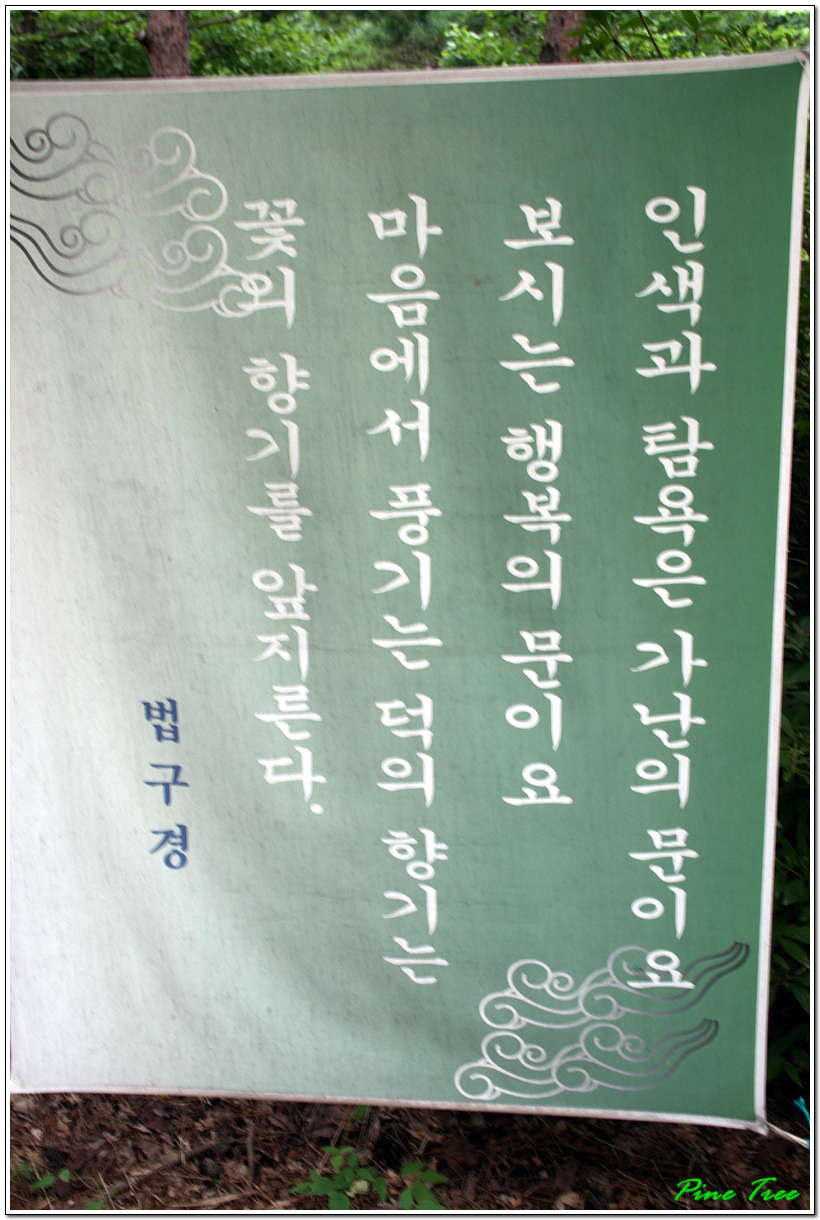 인색과 탐욕은 가난의 문이요
보시는 행복의 문이요
마음에서 풍기는 덕의 향기는
꽃의 향기를 앞지른다.
법구경
Pine Tree